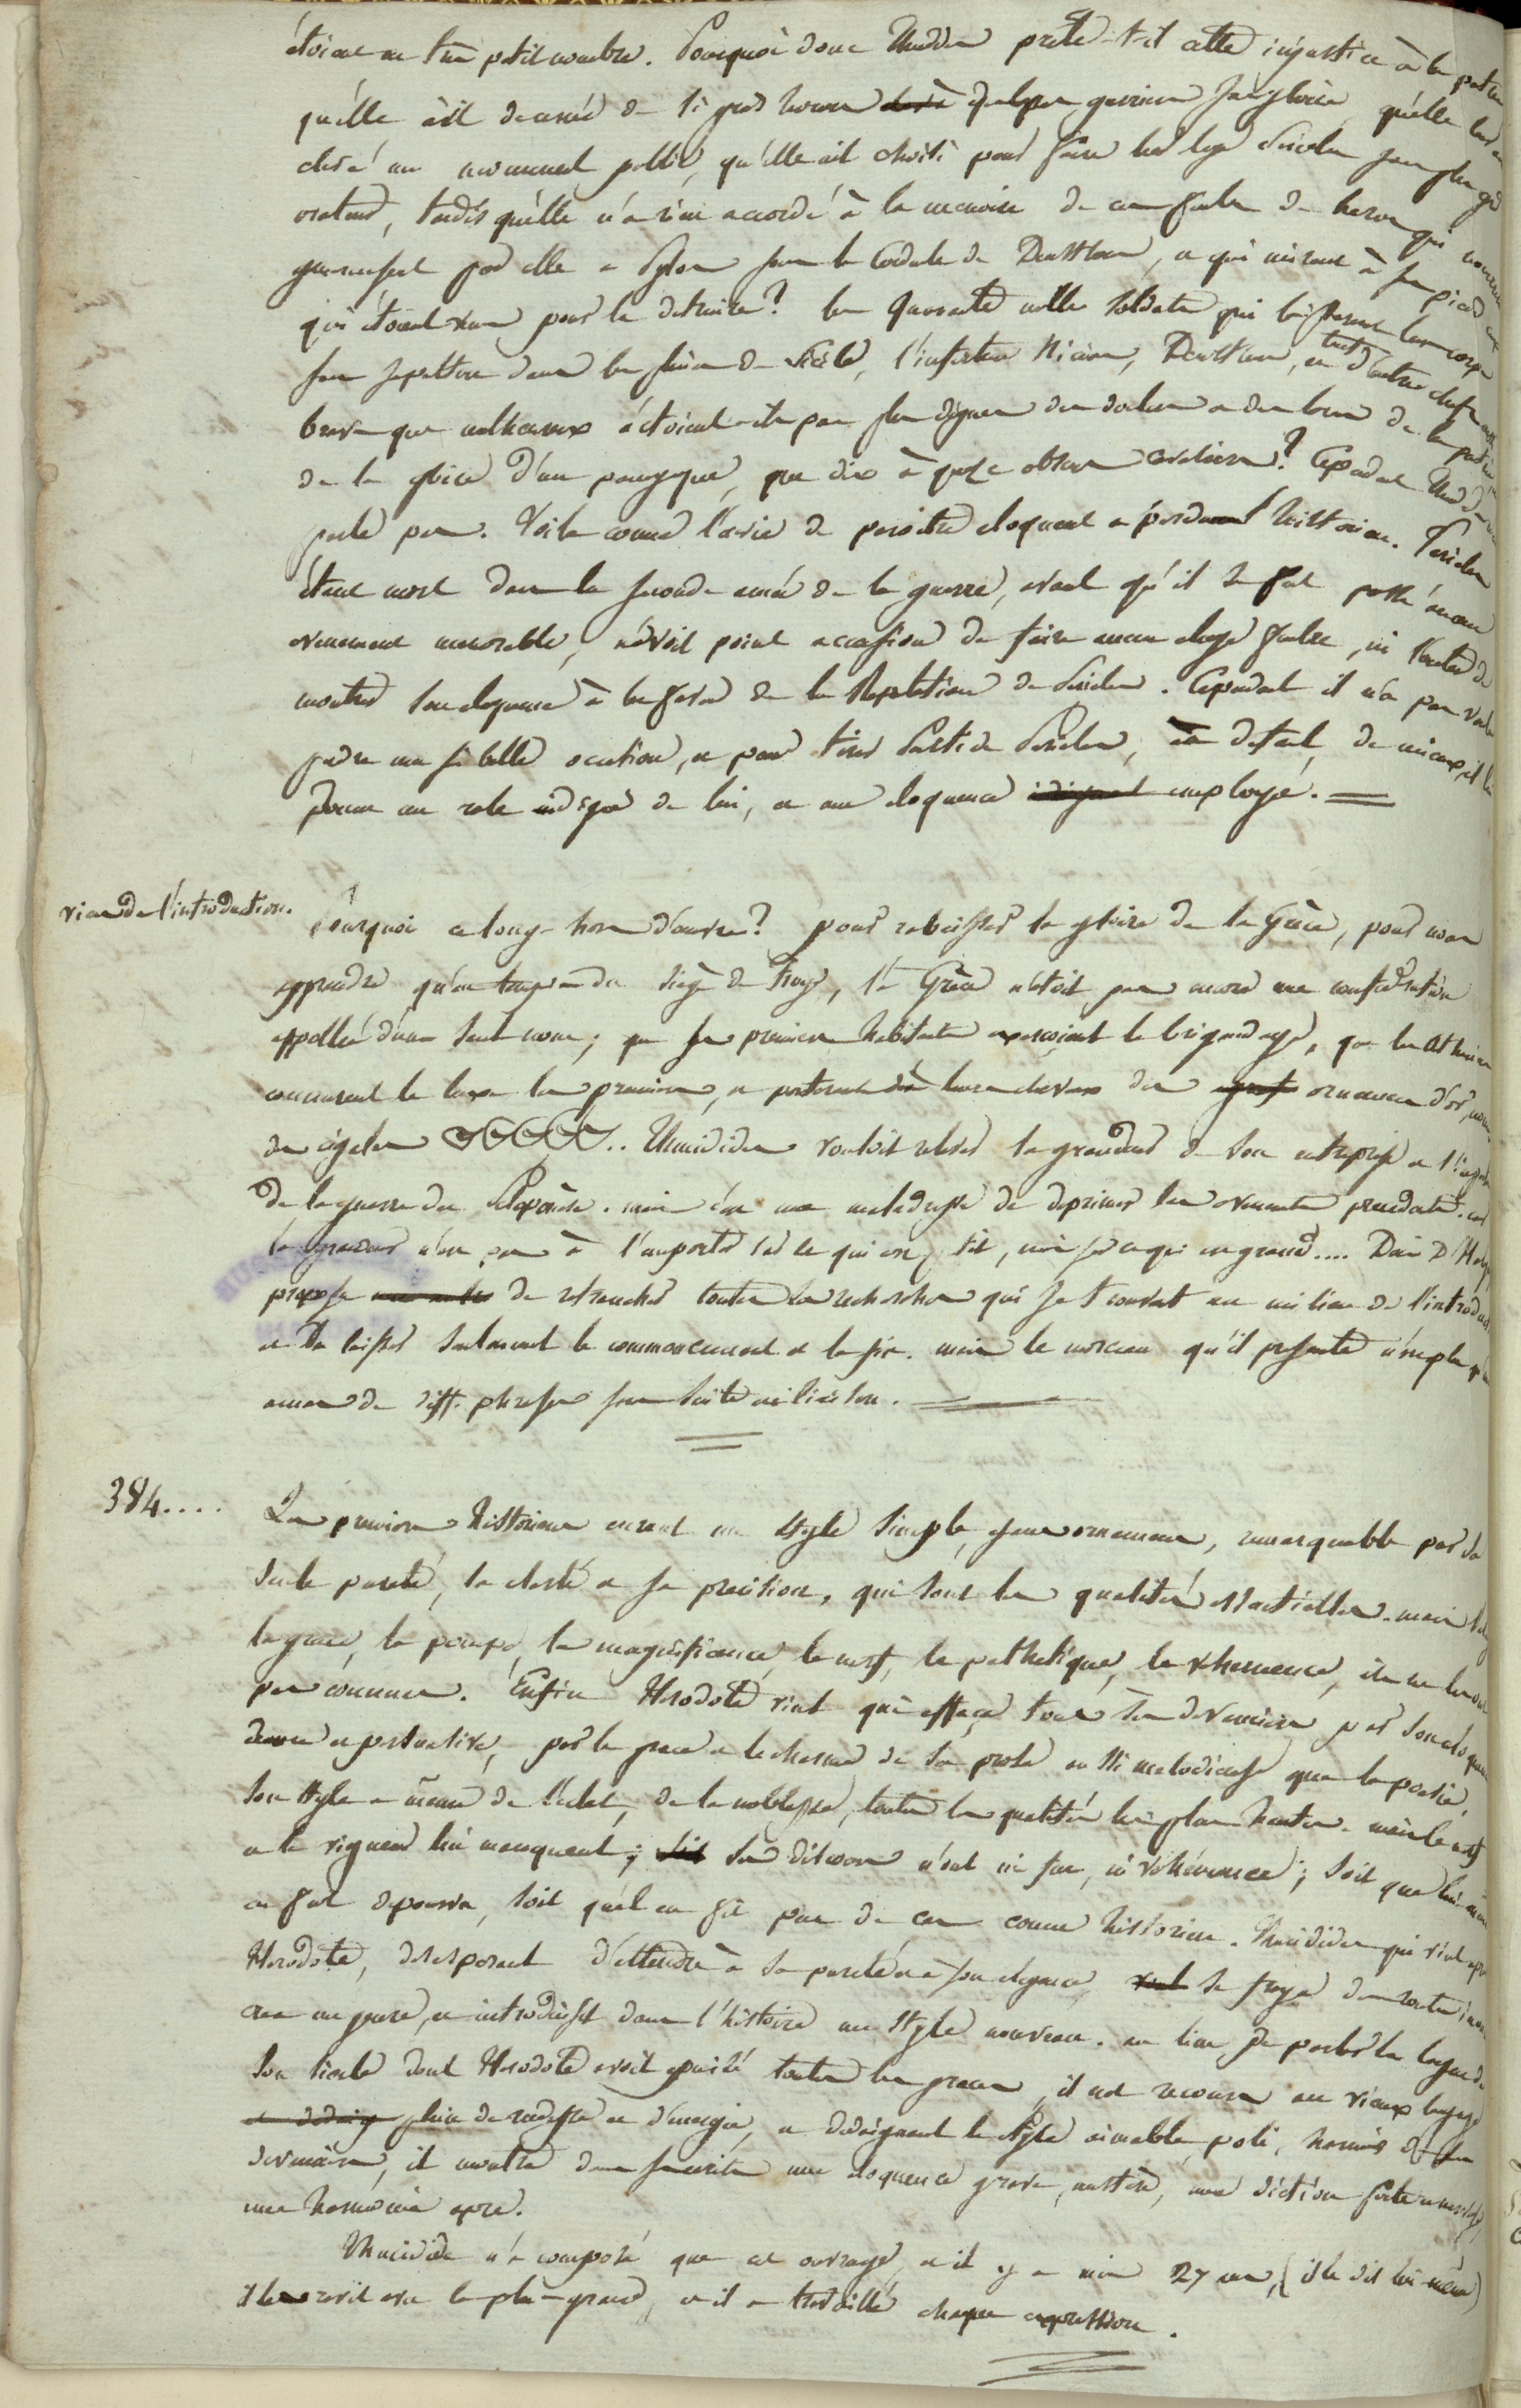 étoient en très petit nombre. Pourquoi donc Thucidide prête-t-il cette injustice à la patrie
qu'elle ait decerné de si grds honneurs à quelques guerriers sans gloire, qu'elle leur ait
élevé un monument public, qu'elle ait choisi pour faire leur éloge Périclès son plus gd
orateur, tandis qu'elle n'a rien accordé à la memoire de cette foule de heros qui moururent
genereusement pour elle a Pylos sous la conduite de Demosthene, et qui mirent à ses pieds ceux
qui étoient venus pour la detruire? les quarante mille soldats qui laisserent leurs corps
sans sepulture dans les plaines de Sicile, l'infortuné Nicias, Demosthene, et tant d'autres chefs aussi
braves que malheureux n'étoient-ils pas plus dignes des douleurs et des larmes de la patrie,
de la gloire d'un panegyrique, que dix à quinze obscurs cavaliers? Cependant Thucidide n'en
parle pas. Voila comme l'envie de paroitre eloquent a perdu l'historien. Periclès
étant mort dans la seconde année de la guerre, avant qu'il se fut passé aucun
evenement memorable, n'avoit point occasion de faire aucun eloge funebre, ni l'auteur de
montrer son eloquence à la faveur de la réputation de Periclès. Cependant il n'a pas voulu
perdre une si belle occasion, et pour tirer parti de Periclès, à defaut de mieux, il lui
donne un role indigne de lui, et une eloquence mal employé.
vice de l'introduction.
Pourquoi ce long hors d'œuvre? pour rabaisser la gloire de la Grèce, pour nous
apprendre qu'au temps du siège de Troye, la Grèce n'étoit pas encore une confédération
appellée d'un seul nom; que ses premiers habitants exerçoient le brigandage, que les Athéniens
connurent le luxe les premiers, et porterent dans leurs cheveux des ornemens d'or, nommés
des cigales. Thucidide vouloit relever la grandeur de son entreprise et l'importance
de la guerre du Peloponèse. mais c'est une maladresse de deprimer les evenements precedents. car
la grandeur n'est pas à l'emporter sur ce qui est petit, mais sur ce qui est grand.... Denis D'Halyc.
propose de retrancher toutes les recherches qui se trouvent au milieu de l'introduction
et de laisser seulement le commencement et la fin. mais le morceau qu'il presente n'est plus qu'un
amas de diff. phrases sans suite ni liaison.
384....
Les premiers historiens eurent un style simple, sans ornemens, remarquable par sa
seule pureté, sa clarté et sa precision, qui sont les qualités essentielles. mais
la grace, la pompe, la magnificence, le nerf, le pathetique, la vehemence, ils ne les ont
pas connues. Enfin Herodote vint qui effaça tous ses devanciers par son eloquence
douce et persuasive, par la grace et le charme de sa prose aussi melodieuse que la poesie.
Son style a même de l'éclat, de la noblesse, toutes les qualités les plus hautes. mais le nerf
et la vigueur lui manquent; ses discours n'ont ni feu, ni véhémence; soit que lui même
en fut depourvu, soit qu'il en fit peu de cas comme historien. Thucidide qui vint après
Herodote, desesperant d'atteindre à sa pureté et à son elegance, se fraya une route,
crea un genre, et introduisit dans l'histoire un style nouveau. au lieu de parler la langue de
son siecle dont Herodote avoit épuisé toutes les graces, il eut recours au vieux langage
plein de rudesse et d'energie, et dédaignant le style aimable, poli, harmonieux de son
devancier, il montre dans ses écrits une eloquence grave, austère, une diction forte et nerveuse,
une harmonie apre.
Thucidide n'a composé que cet ouvrage, et il y a mis 27 ans, (il le dit lui-même)
il l'écrivit avec le plus grand, et il a travaillé chaque expression.